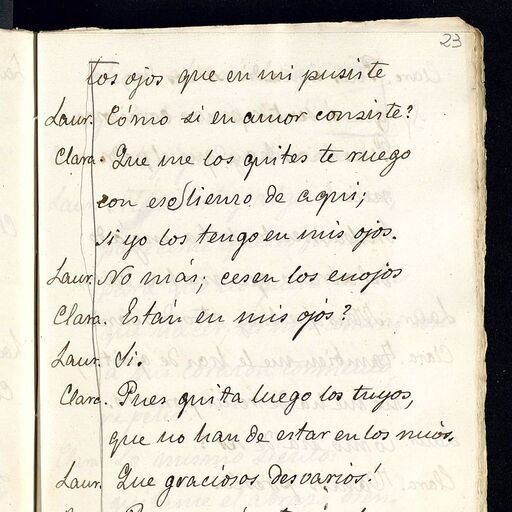 23
Los ojos que en mi pusiste
Laur. Cómo si en amor consiste?
Clara. Que me los quites te ruego
con ese lienzo de aqui;
si yo los tengo en mis ojos.
Laur. No más; cesen los enojos
Clara. Están en mis ojos?
Laur. Si.
Clara. Pues quita luego los tuyos,
que no han de estar en los mios.
Laur. Que graciosos desvarios!